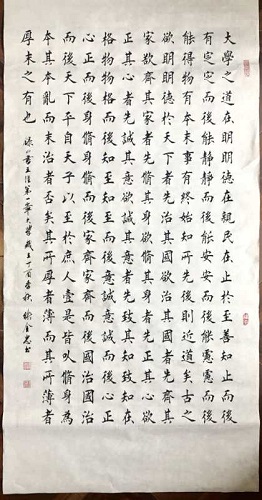 大學之道在明明德在親民在止於至善知止而後
有定定而後能靜靜而後能安安而後能慮慮而後
能得物有本末事有終始知所先後則近道矣古之
欲明明德於天下者先治其國欲治其國者先齊其
家欲齊其家者先脩其身欲脩其身者先正其心欲
正其心者先誠其意欲誠其意者先致其知致知在
格物物格而後知至知至而後意誠意誠而後心正
心正而後身脩身脩而後家齊家齊而後國治國治
而後天下平自天子以至於庶人壹是皆以脩身為
本其本亂而末治者否矣其所厚者薄而其所薄者
厚未之有也
四書五經第一章大學